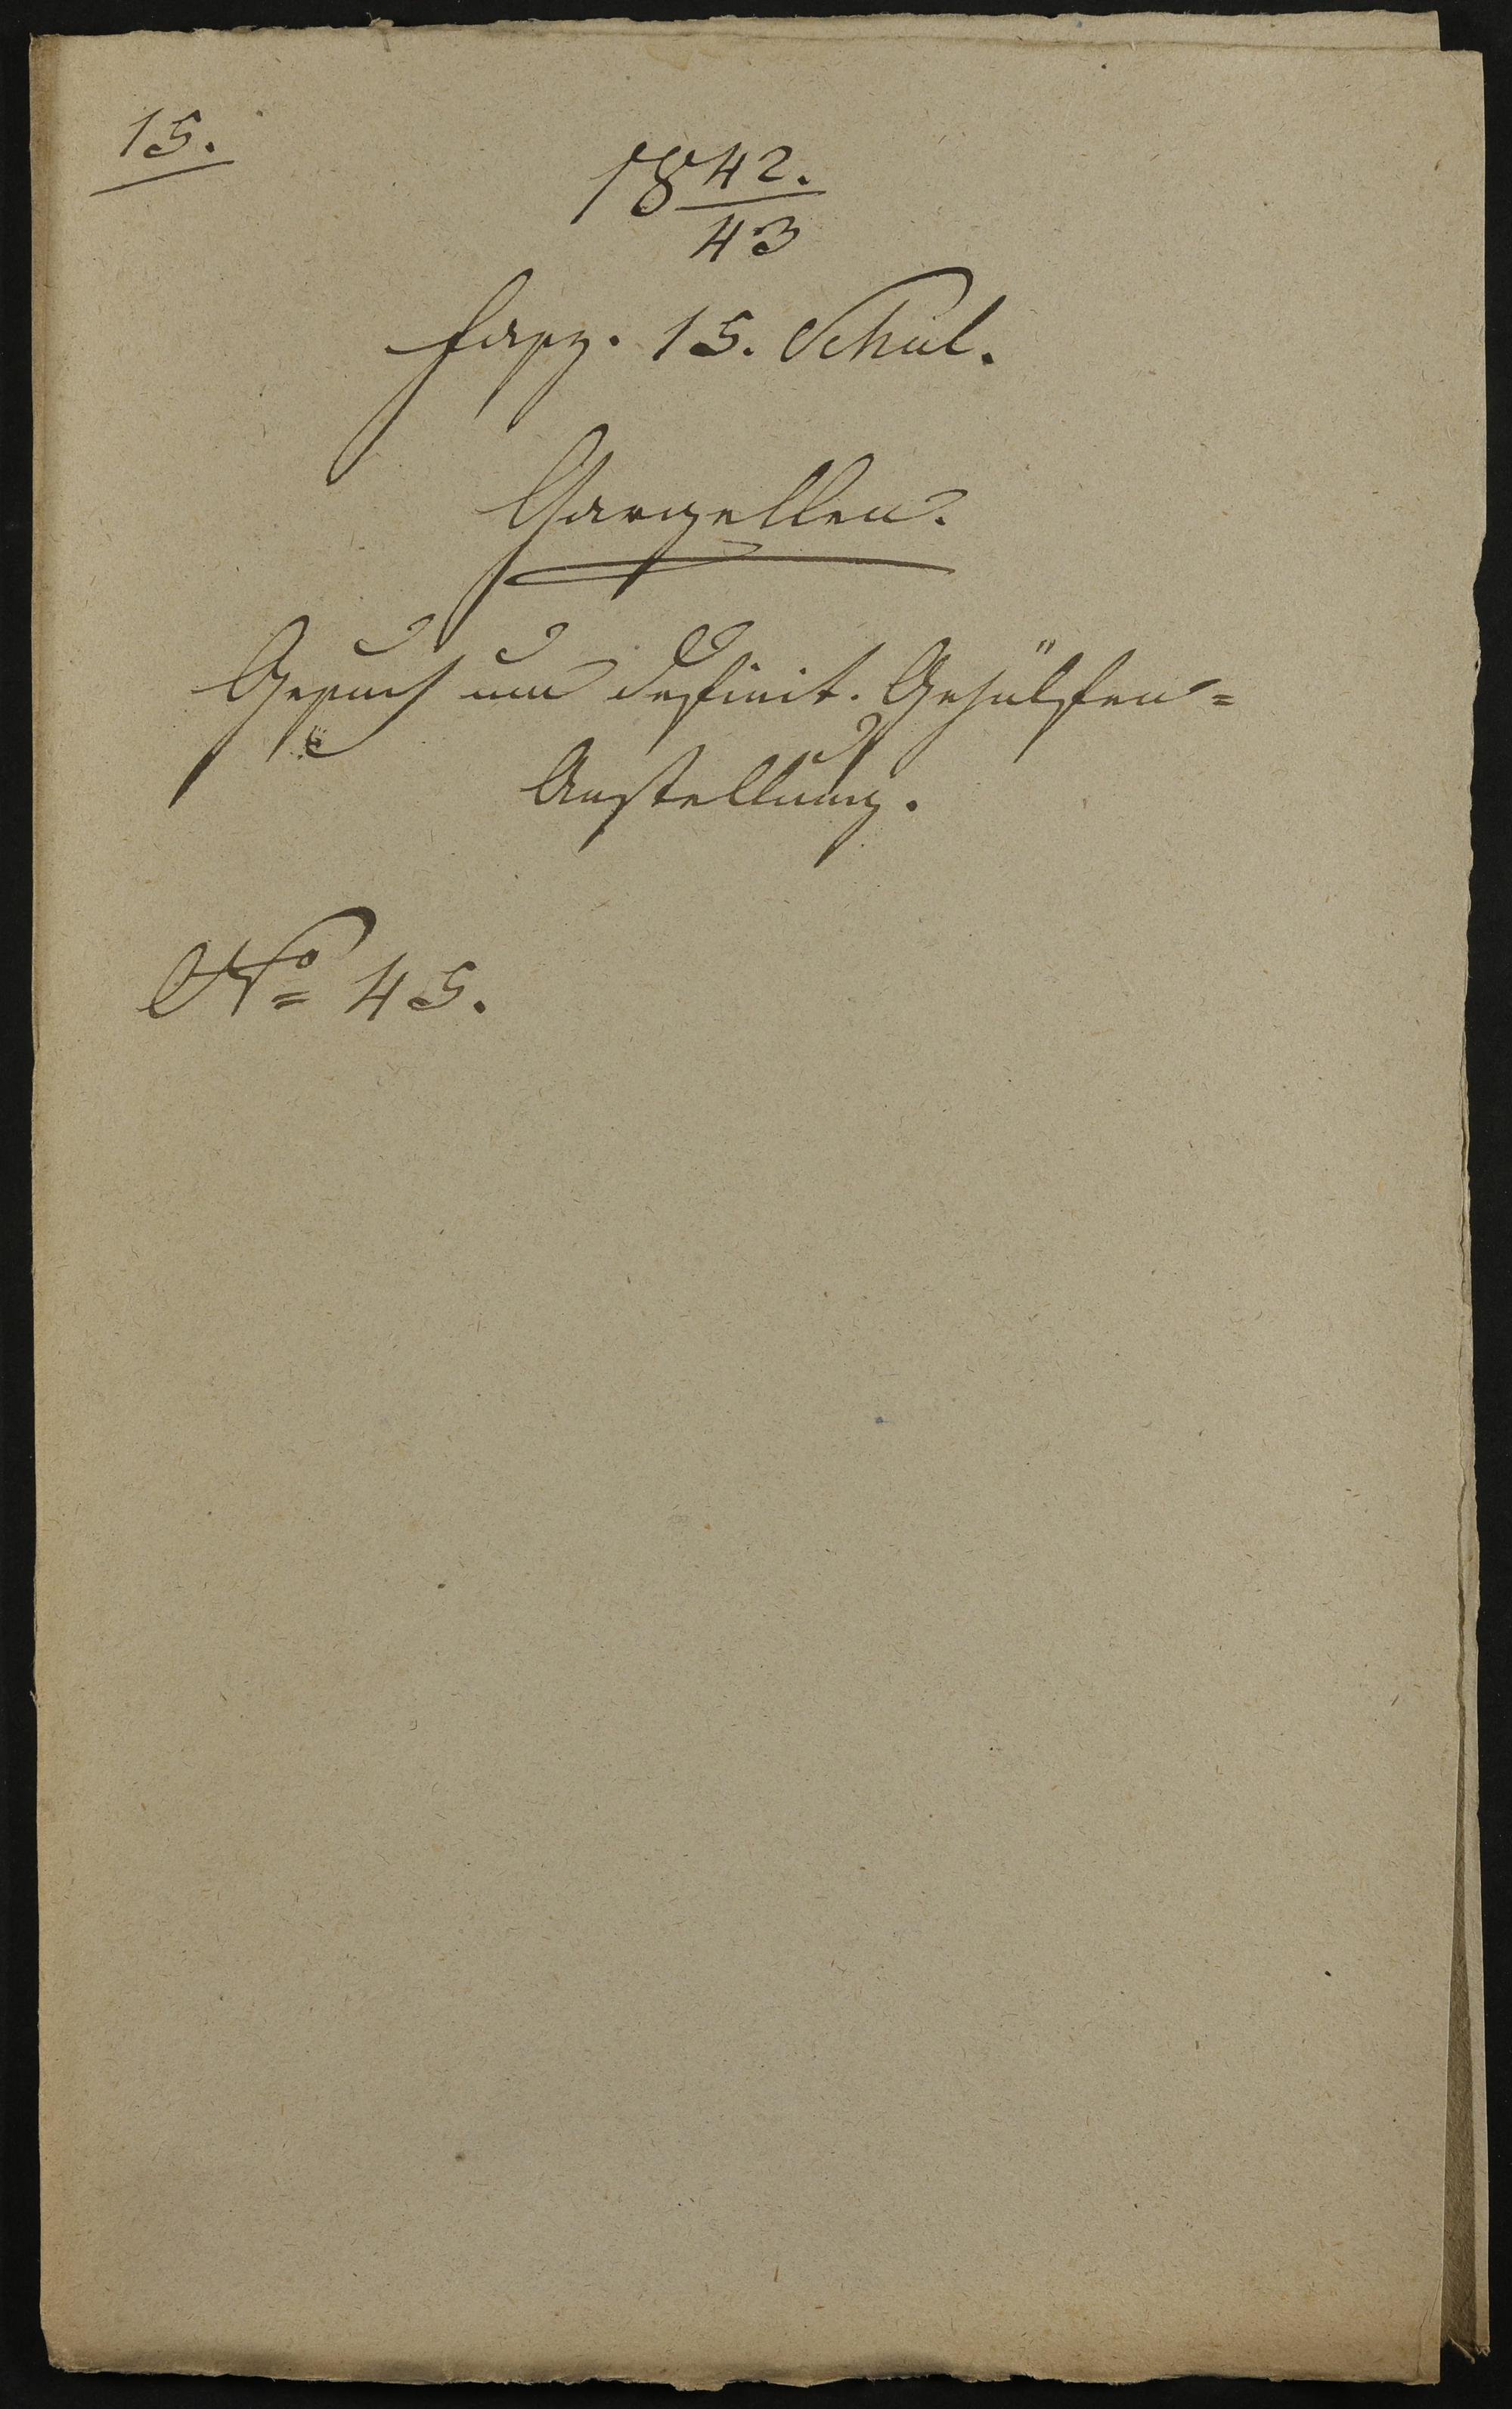 15.
18 42.
43
Fasz. 15. Schul.
Gargellen.
Gesuch um definit. Gehülfen=
Anstellung.
No 45.